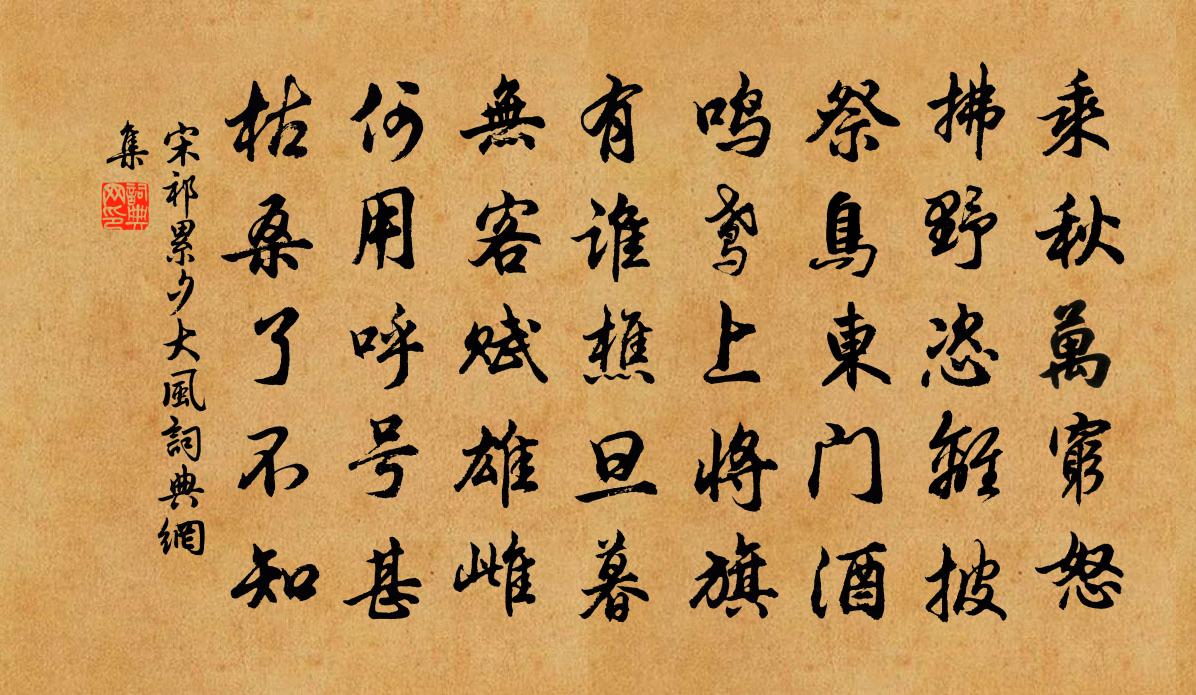 乘秋萬窮怒
拂野恣離披
祭鳥東门酒
鳴鳶上將旗
有誰樵旦暮
無客賦雄雌
何用呼号甚
枯桑了不知
宋祁累夕大風詞典網
集
詞典网印